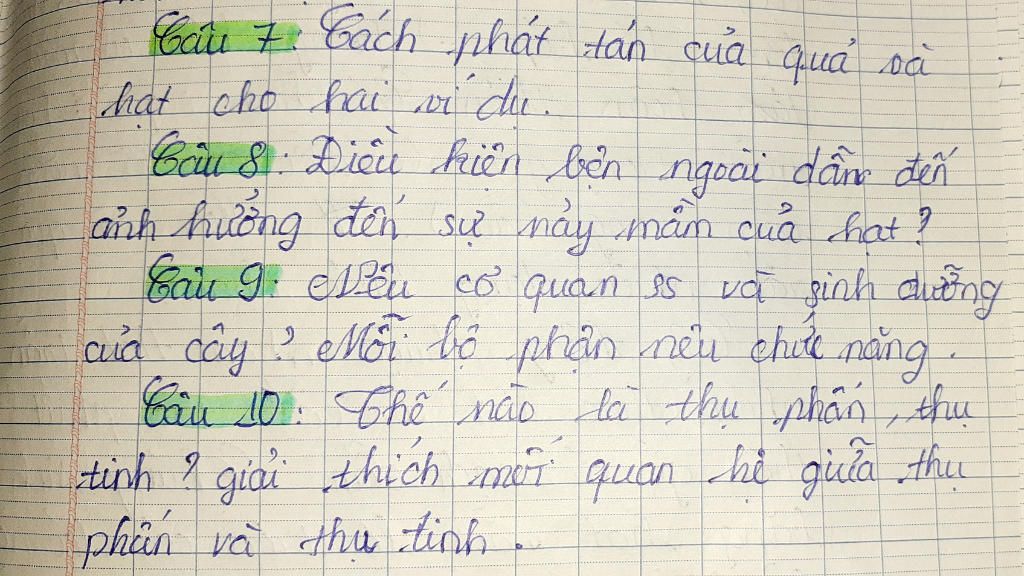 Câu 7: Cách phát tán của quả và
hạt cho hai ví dụ.
Câu 8: Điều kiện bên ngoài dẫn đến
ảnh hưởng đến sự nảy mầm của hạt?
Câu 9: Nêu cơ quan ss và sinh dưỡng
của cây? Mỗi bộ phận nêu chức năng.
Câu 10: Thế nào là thụ phấn, thụ
tinh? giải thích mối quan hệ giữa thụ
phấn và thụ tinh.